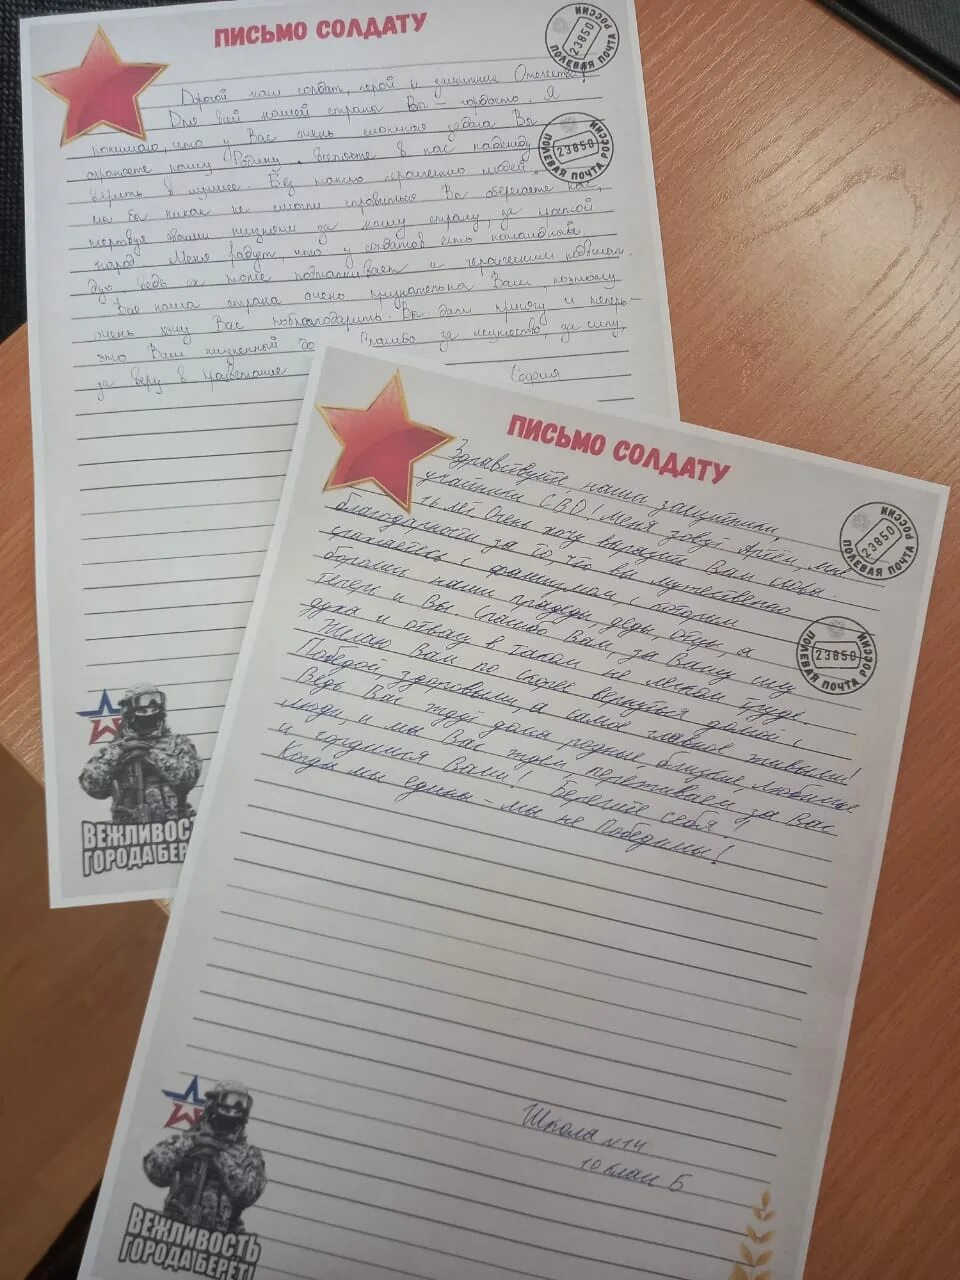 ПИСЬМО СОЛДАТУ
23850
ПОЛЕВАЯ ПОЧТА РОССИИ
Дорогой наш солдат, герой и защитник Отечества!
Для всей нашей страны Вы – гордость. Я
понимаю, что у Вас очень сложная задача Вы
охраняете нашу Родину, вселяете в нас надежду
верить в лучшее. Без таких героических людей,
мы бы никак не смогли справиться Вы оберегаете нас,
жертвуя своими жизнями за нашу страну, за
народ Меня радует, что у солдатов есть
ведь он тоже поддерживает и
Вся наша страна очень признательна Вам, поэтому
очень хочу Вас поблагодарить. Вы дали присягу и теперь –
это Ваш жизненный до Спасибо за мужество, за силу,
за веру в
София
23850
ПОЛЕВАЯ ПОЧТА РОССИИ
ВЕЖЛИВОСТЬ
ГОРОДА БЕРЕ
ПИСЬМО СОЛДАТУ
23850
ПОЛЕВАЯ ПОЧТА РОССИИ
Здравствуйте, наши защитники,
участники СВО! Меня зовут Артём, мне
16 лет Очень хочу выразить Вам слова
благодарности за то, что вы мужественно
сражаетесь с фашизмом, с которым
боролись наши прадеды, деды, отцы, а
теперь и Вы Спасибо Вам за Вашу силу
духа и отвагу в таком не легком труде.
Желаю Вам по скорее вернуться домой с
Победой, здоровыми, а самое главное живыми!
Ведь Вас ждут дома родные близкие, любимые
люди, и мы Вас ждем переживаем за Вас
и гордимся Вами! Берегите себя!
Когда мы едины – мы не победимы!
23850
ПОЛЕВАЯ ПОЧТА РОССИИ
Школа №14
10 класс Б
ВЕЖЛИВОСТЬ
ГОРОДА БЕРЕТ!